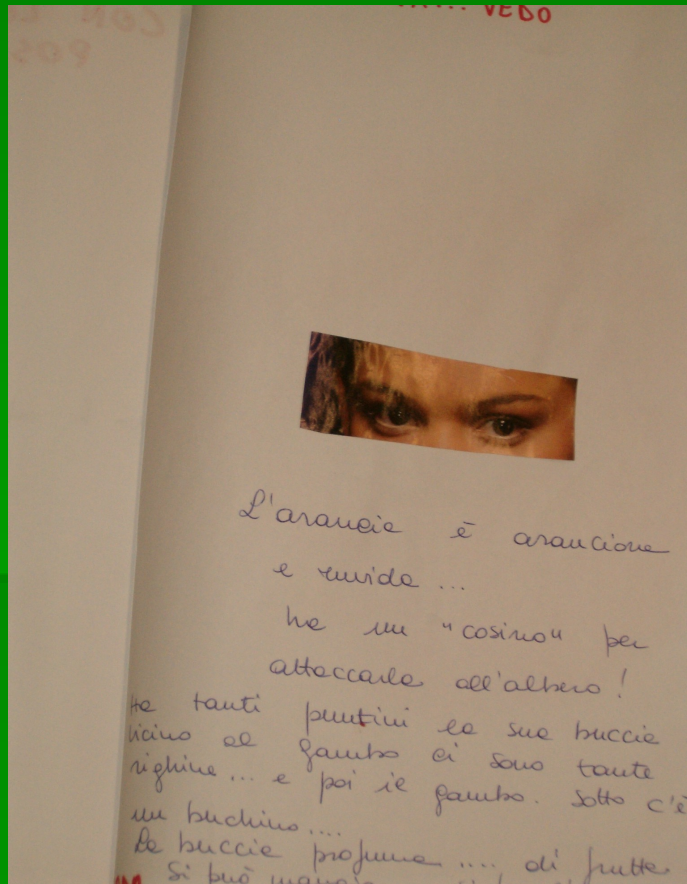 VEDO
CON
POS
L'arancia è arancione
e ruvida ...
ha un "cosino" per
attaccarla all'albero!
Ha tanti puntini la sua buccia
vicino al gambo ci sono tante
righine... e poi il gambo. Sotto c'è
un buchino....
La buccia profuma .... di frutta
Si può